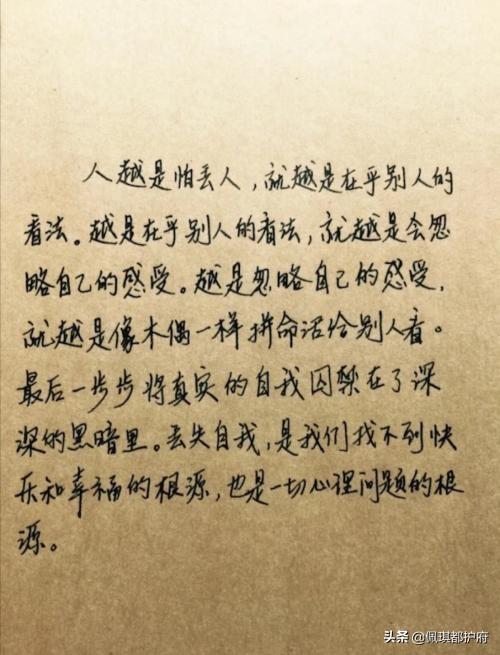 人越是怕丢人，就越是在乎别人的
看法。越是在乎别人的看法，就越是会忽
略自己的感受。越是忽略自己的感受，
就越是像木偶一样拼命活给别人看。
最后一步步将真实的自我囚禁在了深
深的黑暗里。丢失自我，是我们找不到快
乐和幸福的根源，也是一切心理问题的根
源。
头条 @佩琪都护府